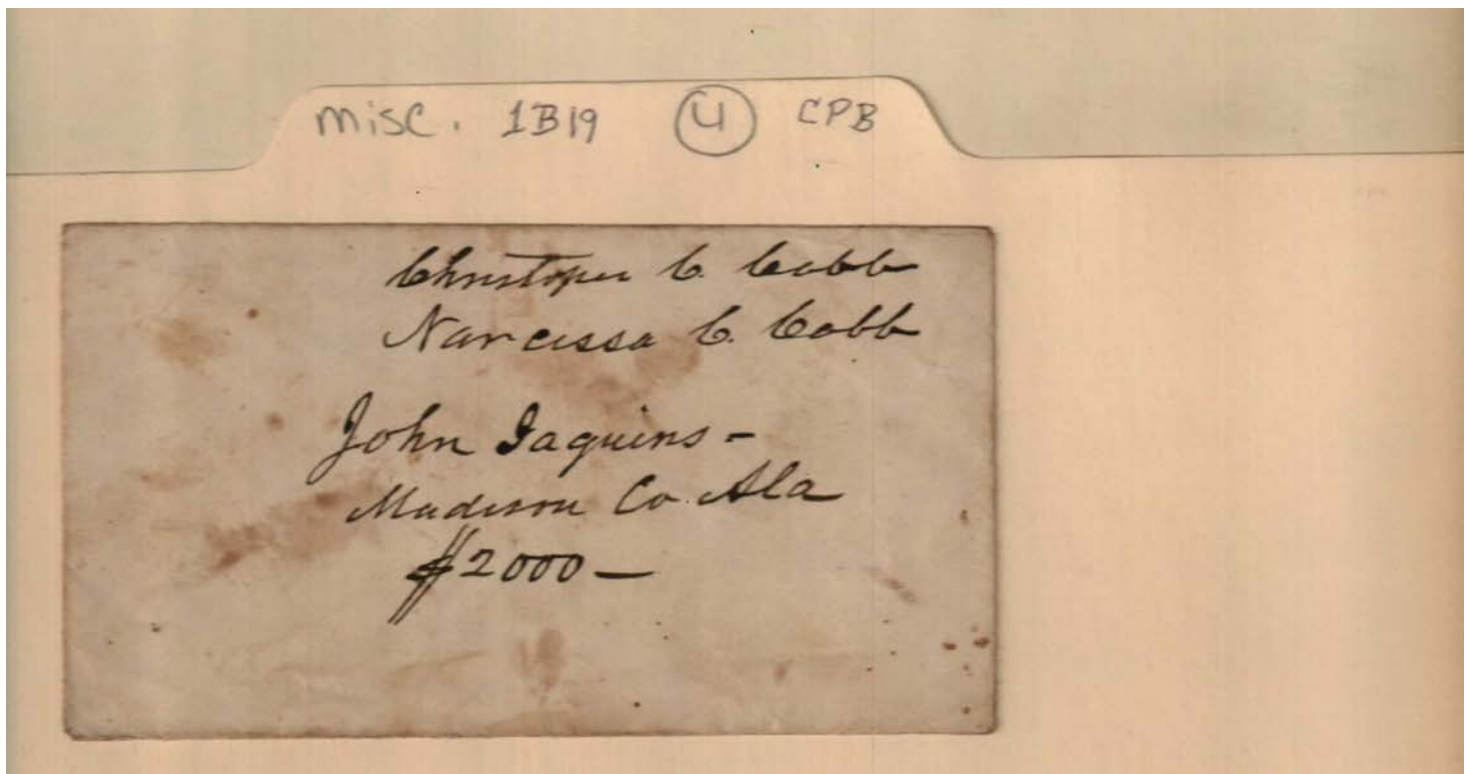 misc. 1B19 4 CPB
Christoper C. Cobb
Narcissa C. Cobb
John Jaquins -
Madison Co. Ala
$2000 —